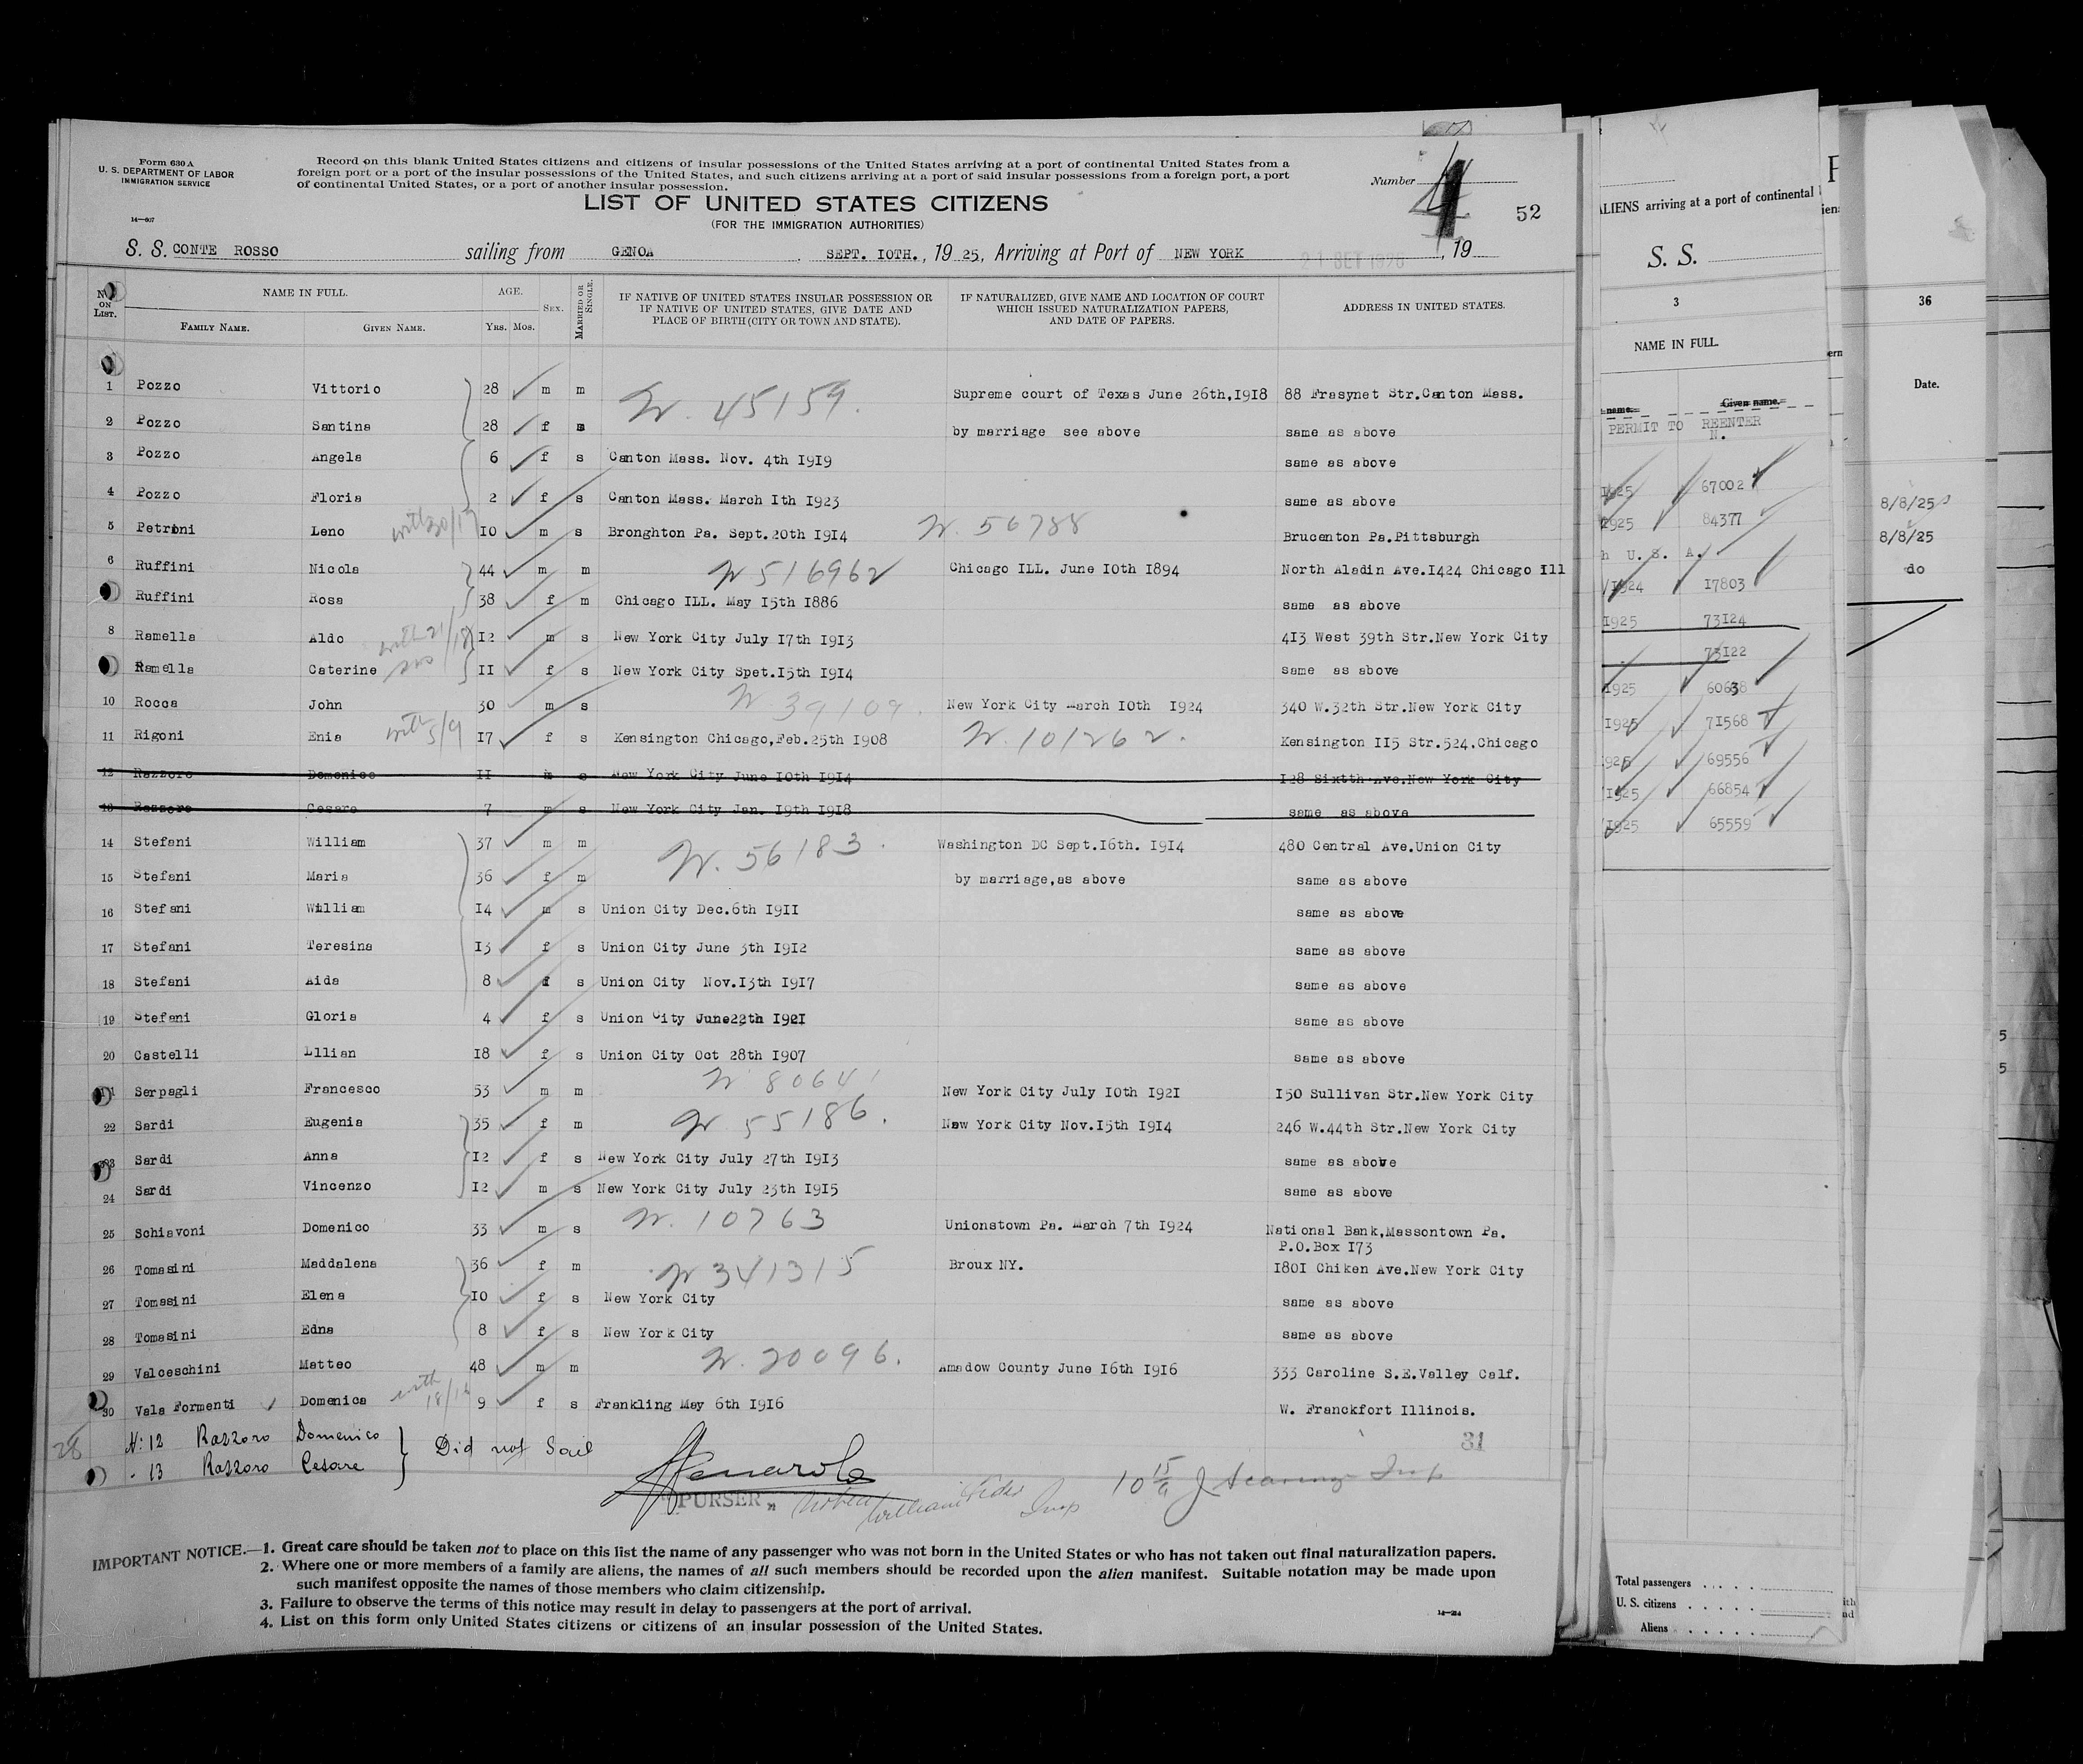 Form 630 A
U. S. DEPARTMENT OF LABOR
IMMIGRATION SERVICE
14—607
Record on this blank United States citizens and citizens of insular possessions of the United States arriving at a port of continental United States from a
foreign port or a port of the insular possessions of the United States, and such citizens arriving at a port of said insular possessions from a foreign port, a port
of continental United States, or a port of another insular possession.
Number 4
52
LIST OF UNITED STATES CITIZENS
(FOR THE IMMIGRATION AUTHORITIES)
S. S. CONTE ROSSO sailing from GENOA SEPT. IOTH., 19 25, Arriving at Port of NEW YORK , 19
No. ON LIST. NAME IN FULL. AGE. SEX. MARRIED OR SINGLE. IF NATIVE OF UNITED STATES INSULAR POSSESSION OR IF NATIVE OF UNITED STATES, GIVE DATE AND PLACE OF BIRTH (CITY OR TOWN AND STATE). IF NATURALIZED, GIVE NAME AND LOCATION OF COURT WHICH ISSUED NATURALIZATION PAPERS, AND DATE OF PAPERS. ADDRESS IN UNITED STATES.
FAMILY NAME. GIVEN NAME. Yrs. Mos.
1 Pozzo Vittorio 28 m m N. 45159. Supreme court of Texas June 26th,I9I8 88 Frasynet Str.Canton Mass.
2 Pozzo Santina 28 f m by marriage see above same as above
3 Pozzo Angela 6 f s Canton Mass. Nov. 4th I9I9 same as above
4 Pozzo Floria 2 f s Canton Mass. March Ith I923 same as above
5 Petroni Leno with 30/17 IO m s Bronghton Pa. Sept.20th I9I4 N. 56788 Brucenton Pa.Pittsburgh
6 Ruffini Nicola 44 m m N 516962 Chicago ILL. June IOth I894 North Aladin Ave.I424 Chicago Ill
Ruffini Rosa 38 f m Chicago ILL. May I5th I886 same as above
8 Ramella Aldo with 21/18 I2 m s New York City July I7th I9I3 4I3 West 39th Str.New York City
Ramella Caterine II f s New York City Spet.I5th I9I4 same as above
10 Rocca John 30 m s N. 39109. New York City March IOth I924 340 W.32th Str.New York City
11 Rigoni Enia with 5/9 I7 f s Kensington Chicago,Feb.25th I908 N. 101262. Kensington II5 Str.524.Chicago
12 Razzoro Domenico II m s New York City June IOth I9I4 I28 Sixtth Ave.New York City
13 Razzoro Cesare 7 m s New York City Jan. I9th I9I8 same as above
14 Stefani William 37 m m N. 56183. Washington DC Sept.I6th. I9I4 480 Central Ave.Union City
15 Stefani Maria 36 f m by marriage,as above same as above
16 Stefani William I4 m s Union City Dec.6th I9II same as above
17 Stefani Teresina I3 f s Union City June 3th I9I2 same as above
18 Stefani Aida 8 f s Union City Nov.I3th I9I7 same as above
19 Stefani Gloria 4 f s Union City June22th I92I same as above
20 Castelli Lllian I8 f s Union City Oct 28th I907 same as above
Serpagli Francesco 53 m m N 80641 New York City July IOth I92I I50 Sullivan Str.New York City
22 Sardi Eugenia 35 f m N 55186. New York City Nov.I5th I9I4 246 W.44th Str.New York City
Sardi Anna I2 f s New York City July 27th I9I3 same as above
24 Sardi Vincenzo I2 m s New York City July 23th I9I5 same as above
25 Schiavoni Domenico 33 m s N. 10763 Unionstown Pa. March 7th I924 National Bank,Massontown Pa.
P.O.Box I73
26 Tomasini Maddalena 36 f m N 341315 Broux NY. I80I Chiken Ave.New York City
27 Tomasini Elena IO f s New York City same as above
28 Tomasini Edna 8 f s New York City same as above
29 Valceschini Matteo 48 m m N. 20096. Amadow County June I6th I9I6 333 Caroline S.E.Valley Calf.
30 Vala Formenti Domenica with 18/14 9 f s Frankling May 6th I9I6 W. Franckfort Illinois.
28 N: 12 Razzoro Domenico } Did not Sail 31
- 13 Razzoro Cesare
PURSER
IMPORTANT NOTICE.—1. Great care should be taken not to place on this list the name of any passenger who was not born in the United States or who has not taken out final naturalization papers.
2. Where one or more members of a family are aliens, the names of all such members should be recorded upon the alien manifest. Suitable notation may be made upon
such manifest opposite the names of those members who claim citizenship.
3. Failure to observe the terms of this notice may result in delay to passengers at the port of arrival.
4. List on this form only United States citizens or citizens of an insular possession of the United States.
ALIENS arriving at a port of continental
S. S.
3
NAME IN FULL.
name. Given name.
PERMIT TO REENTER
N.
1925 67002
1925 84377
h U. S. A.
/1924 17803
1925 73124
73122
1925 60638
1925 71568
925 69556
/1925 66854
/1925 65559
Total passengers
U. S. citizens
Aliens
36
Date.
8/8/25
8/8/25
do
5
5